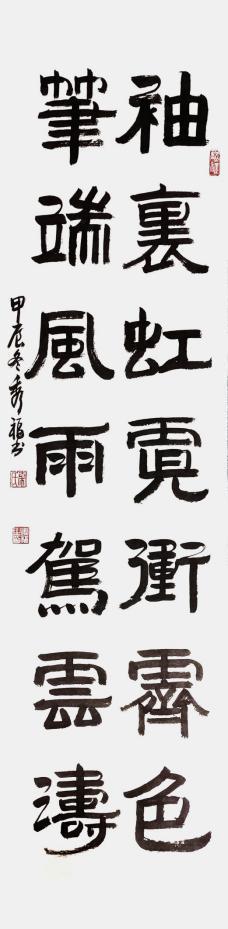 袖裏虹霓衝霽色
筆端風雨駕雲濤
甲辰冬秀福书